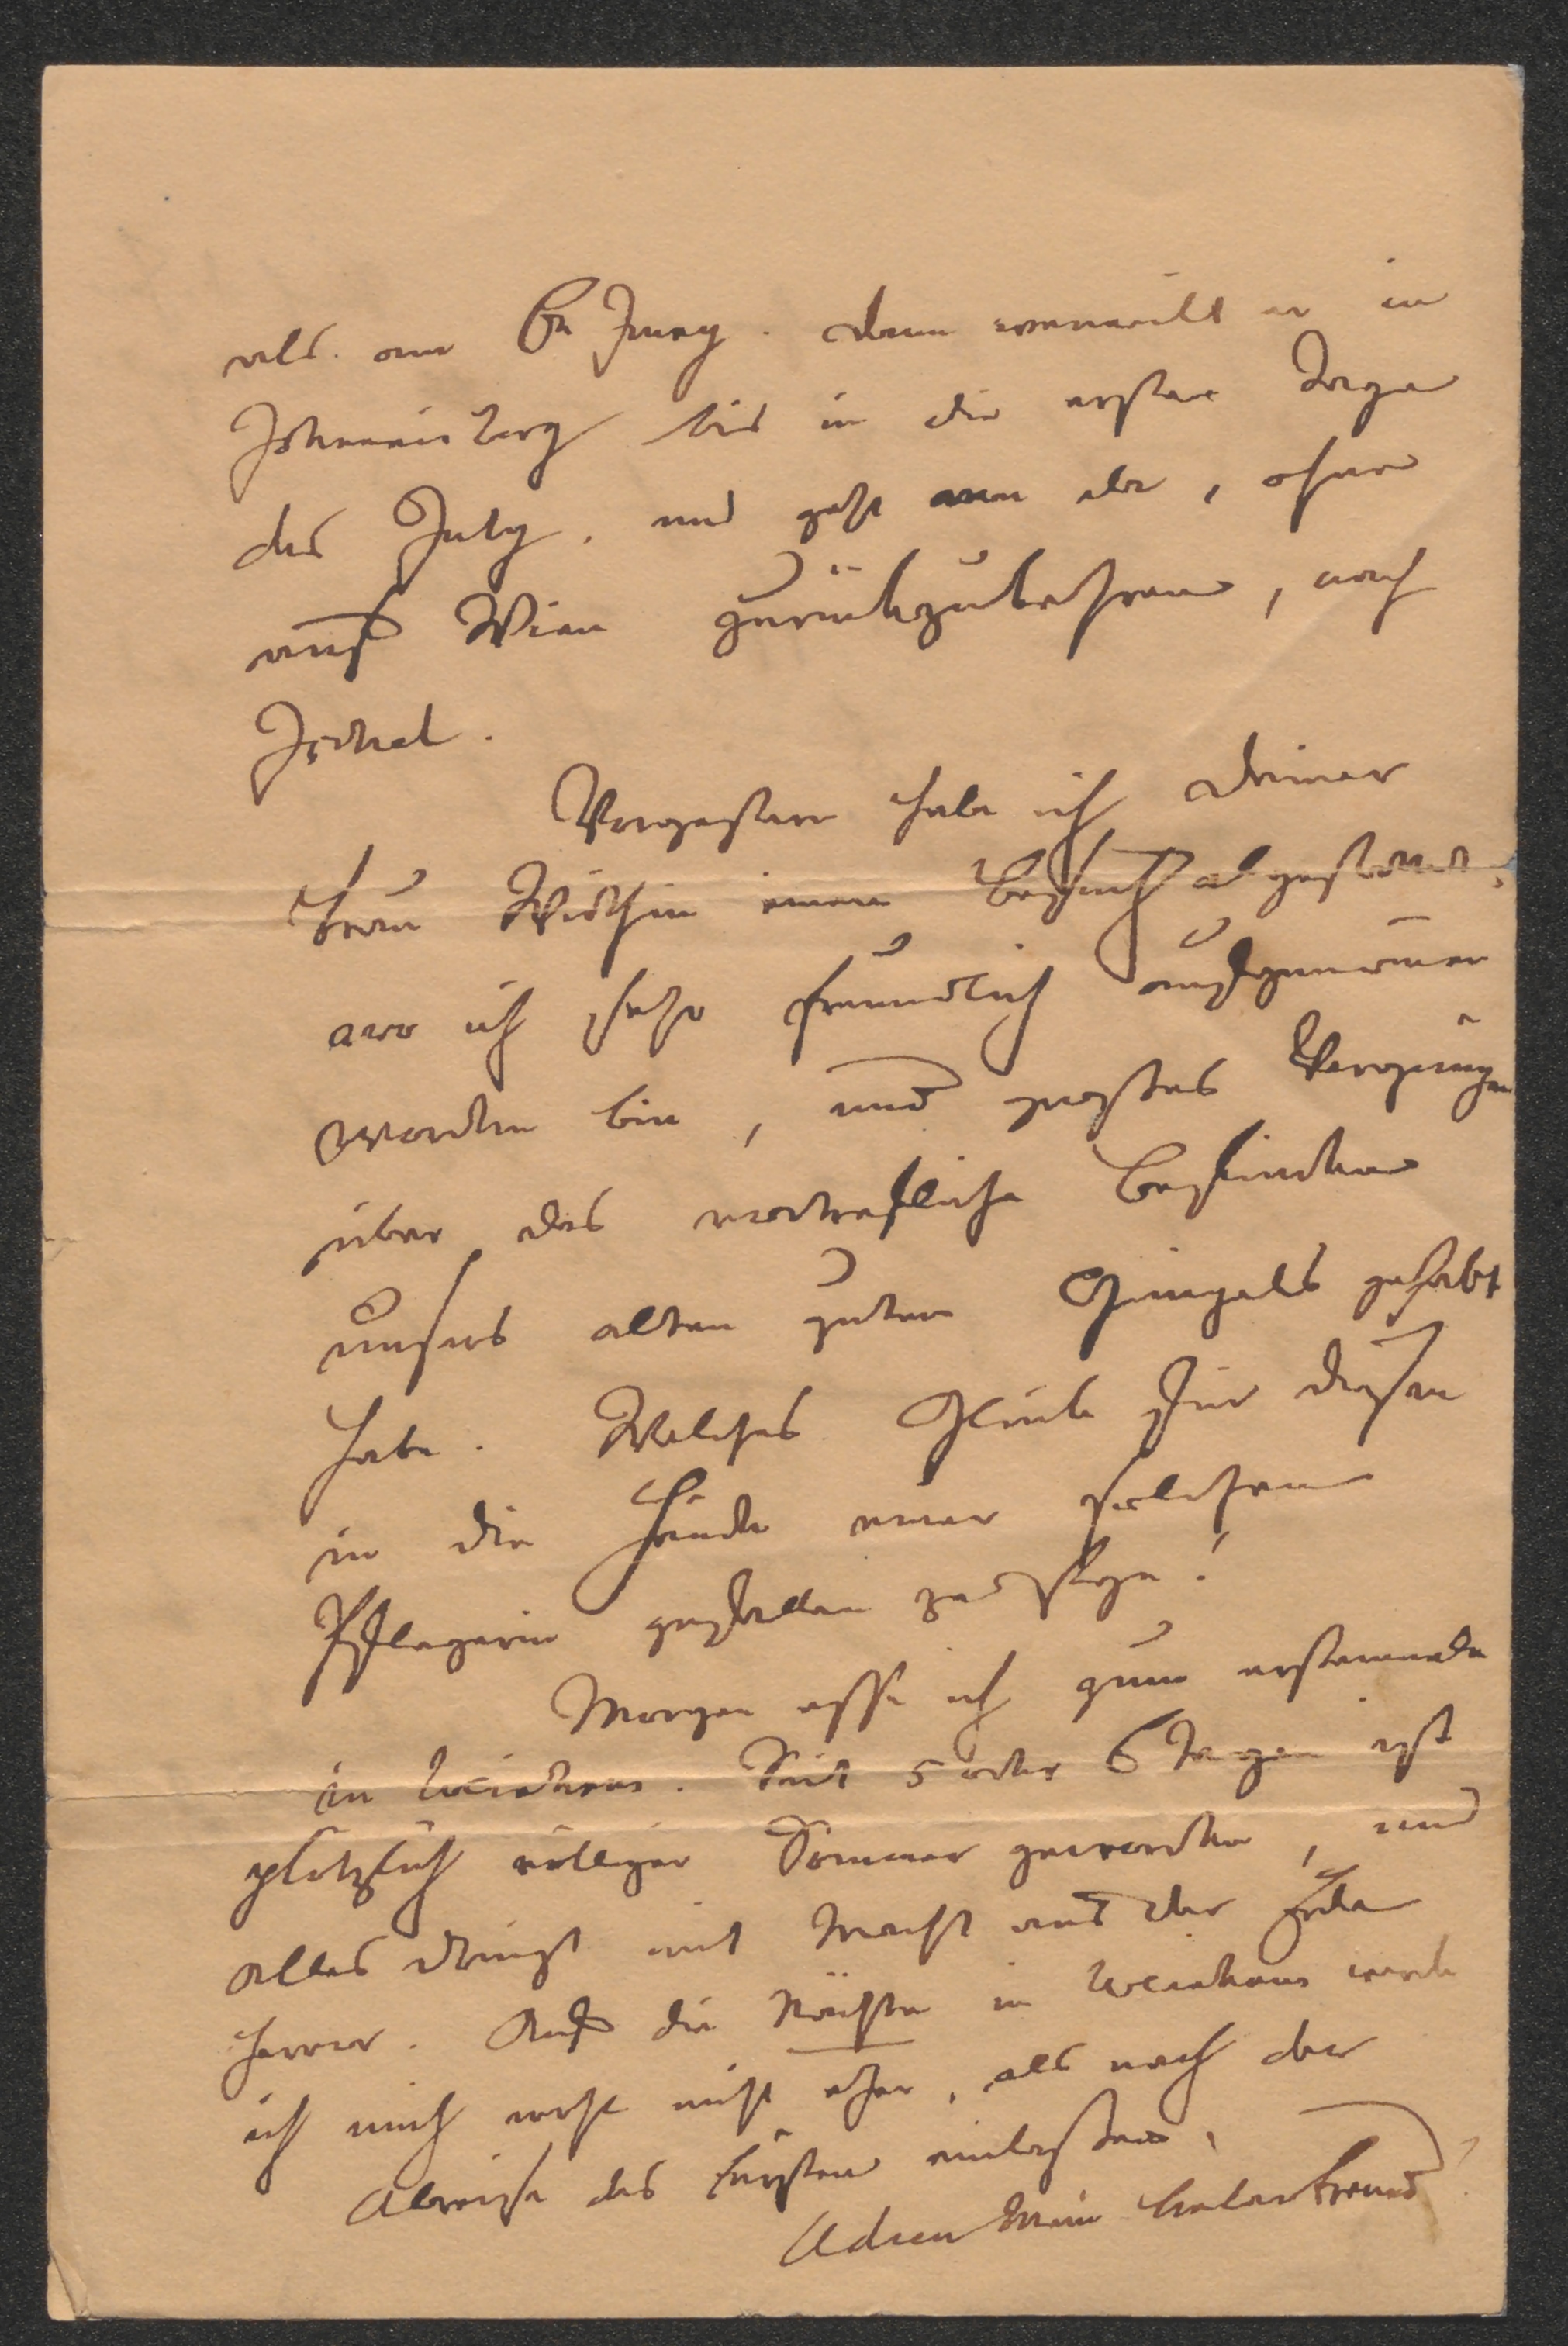 als am 6n Juny. Dann verweilt er in
Johannisberg bis in die ersten Tage
des July, und geht von da, ohne
auf Wien zurückzukehren, nach
Ischel.
Vorgestern habe ich Deiner
Frau Wirthin einen Besuch abgestattet,
wo ich sehr freundlich aufgenom̅en
worden bin, und großes Vergnügen
über das vortrefliche Befinden
unsers alten guten gehabt
habe. Welches Glück für diesen
in die Hände einer solchen
Pflegerin gefallen zu seyn!
Morgen esse ich zum erstenmale
in Weinhaus. Seit 5 oder 6 Tagen ist
plötzlich völliger Sommer geworden, und
alles dringt mit Macht aus der Erde
hervor. Auf die Nächte in Weinhaus werde
ich mich wohl nicht eher, als nach der
Abreise des Fürsten einlassen.
Adieu mein lieber Freund!